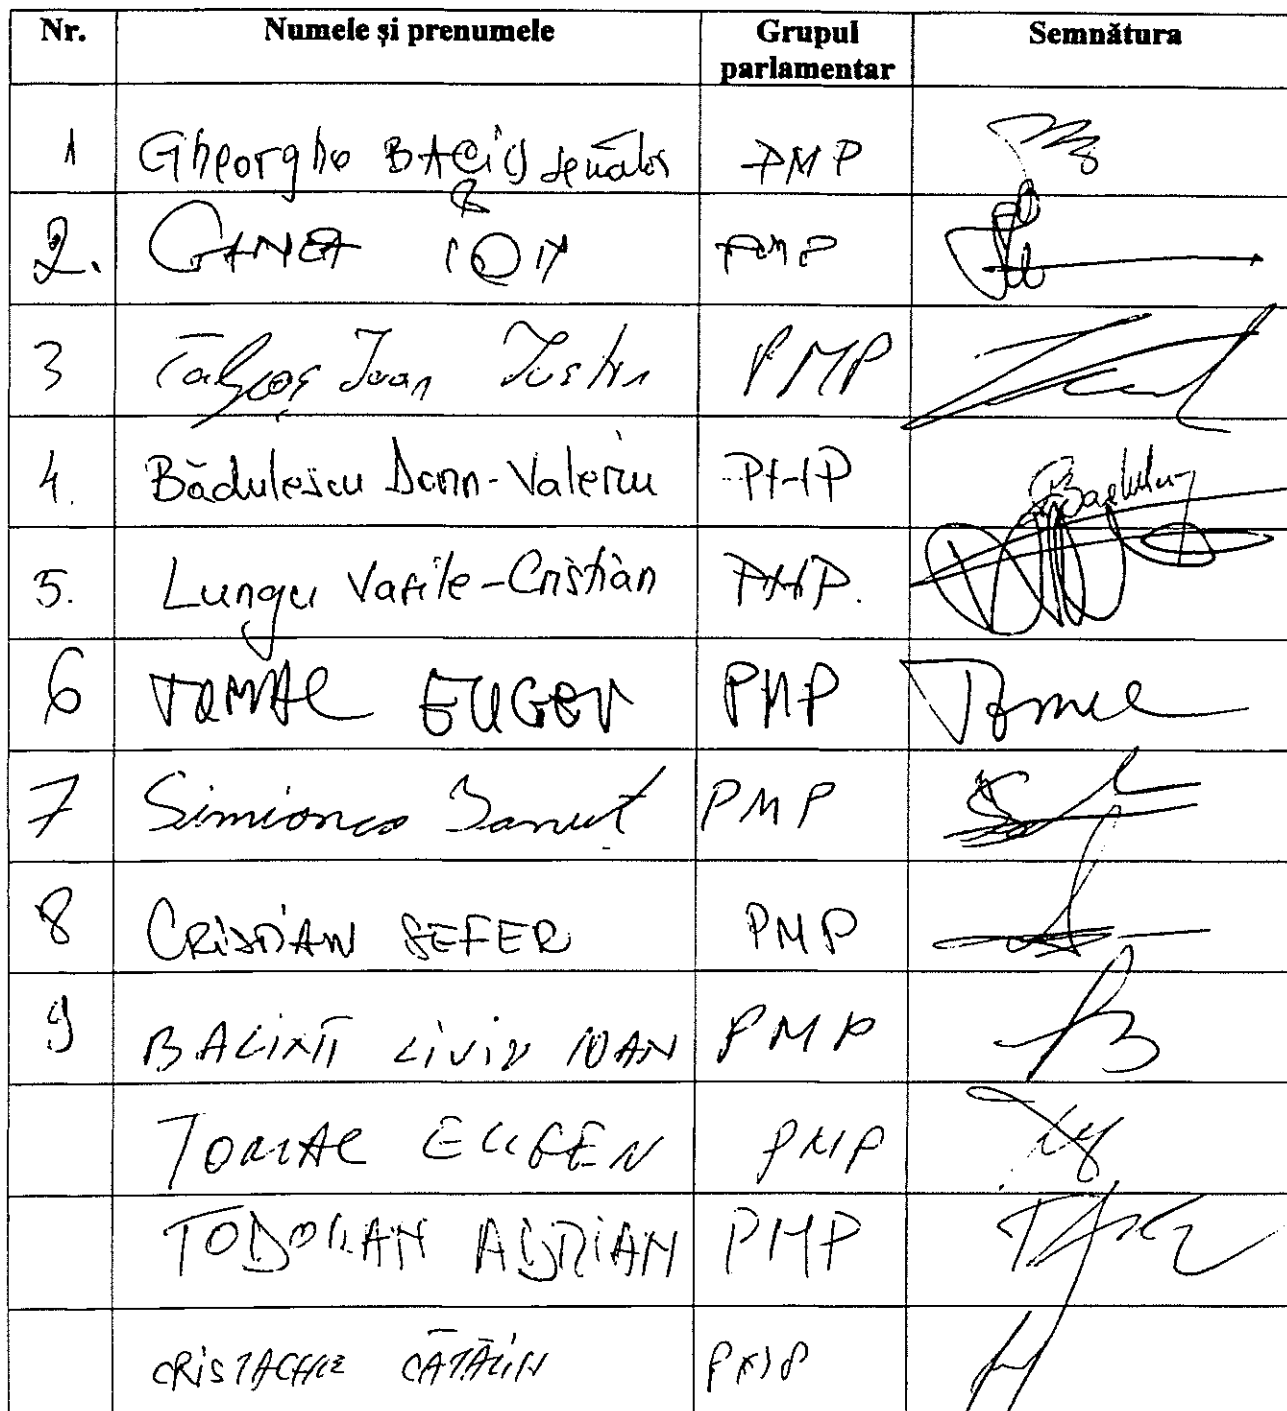 Nr. Numele și prenumele Grupul parlamentar Semnătura
1 Gheorghe BACIU senator PMP
2. GANEA ION PMP
3 Talpoș Ioan Iustin PMP
4. Bădulescu Dorin-Valeriu PMP Badulescu
5. Lungu Vasile-Cristian PMP.
6 TOMAC EUGEN PMP Tomac
7 Simionca Ionut PMP
8 CRISTIAN SEFER PMP
9 BALINT LIVIU IOAN PMP
TOMAC EUGEN PMP
TODORAN ADRIAN PMP
CRISTACHE CĂTĂLIN PMP